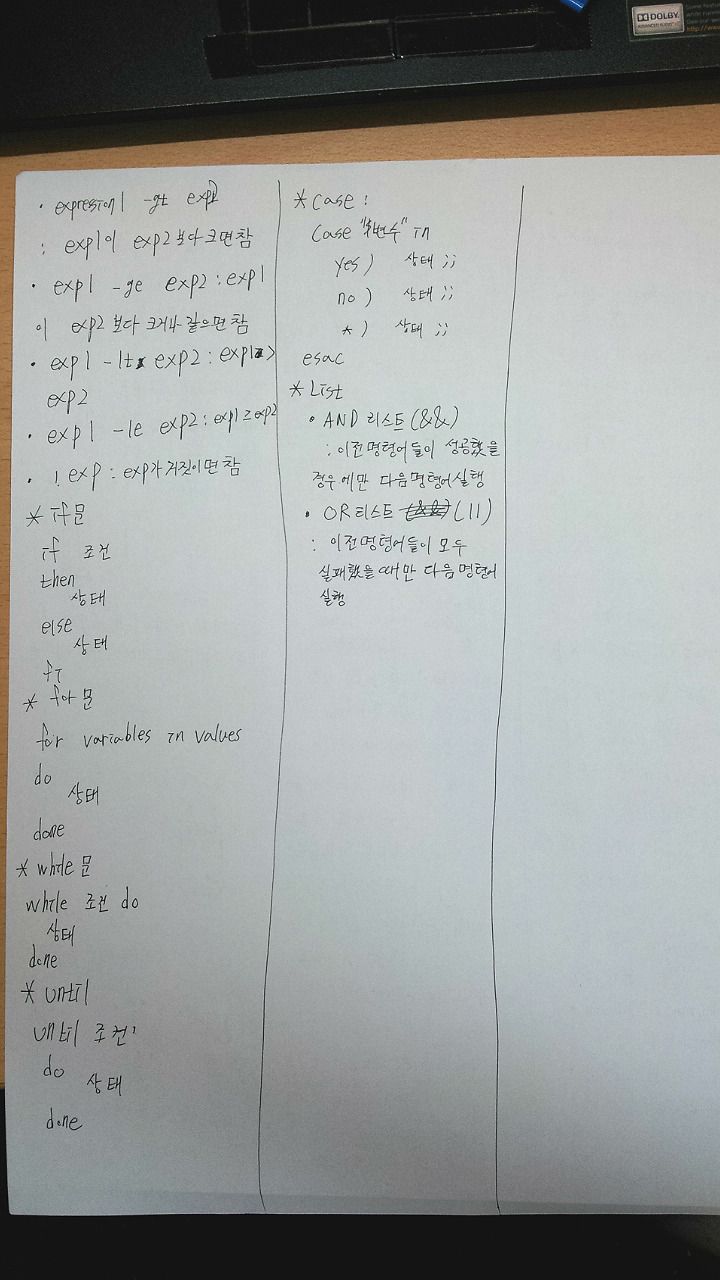 DOLBY
ADVANCED AUDIO
· expression1 -gt exp2
: exp1이 exp2보다 크면 참
· exp1 -ge exp2 : exp1
이 exp2 보다 크거나 같으면 참
· exp1 -lt exp2 : exp1 >
exp2
· exp1 -le exp2 : exp1 ≥ exp2
· ! exp : exp가 거짓이면 참
* if문
if 조건
then
상태
else
상태
fi
* for 문
for variables in values
do
상태
done
* while 문
while 조건 do
상태
done
* until
until 조건
do
상태
done
* case :
case "$변수" in
yes ) 상태 ;;
no ) 상태 ;;
* ) 상태 ;;
esac
* List
· AND 리스트 (&&)
: 이전 명령어들이 성공했을
경우에만 다음 명령어 실행
· OR 리스트 (||)
: 이전 명령어들이 모두
실패했을 때만 다음 명령어
실행